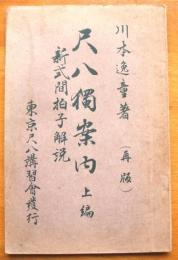 川本逸童著　（再版）
尺八獨案内 上編
新式間拍子解説
東京尺八講習會發行